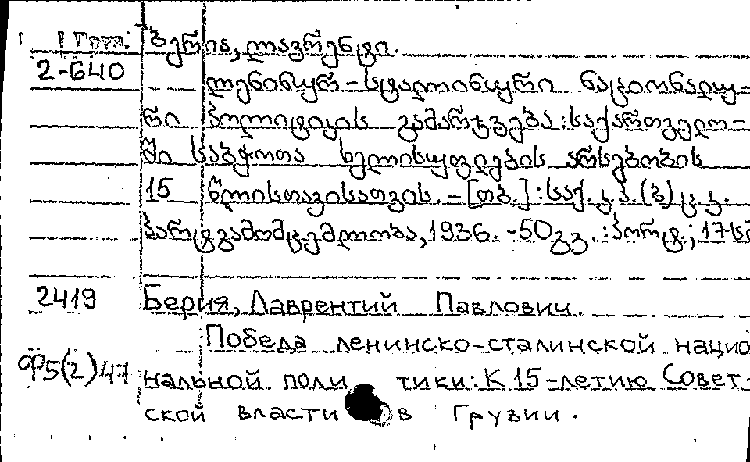 1 груз. ბერია, ლავრენტი.
2-640 ლენინურ-სტალინური ნაციონალუ-
რი პოლიტიკის გამარჯვება: საქართველო-
ში საბჭოთა ხელისუფლების არსებობის
15 წლისთავისათვის. – [თბ.]: საქ. კ.პ.(ბ) ც.კ.
პარტგამომცემლობა, 1936. -50გვ.: პორტ.; 17სმ
2419 Берия, Лаврентий Павлович.
Победа ленинско-сталинской нацио
Ф5(2)47 нальной поли тики: К 15-летию Совет-
ской власти в Грузии.